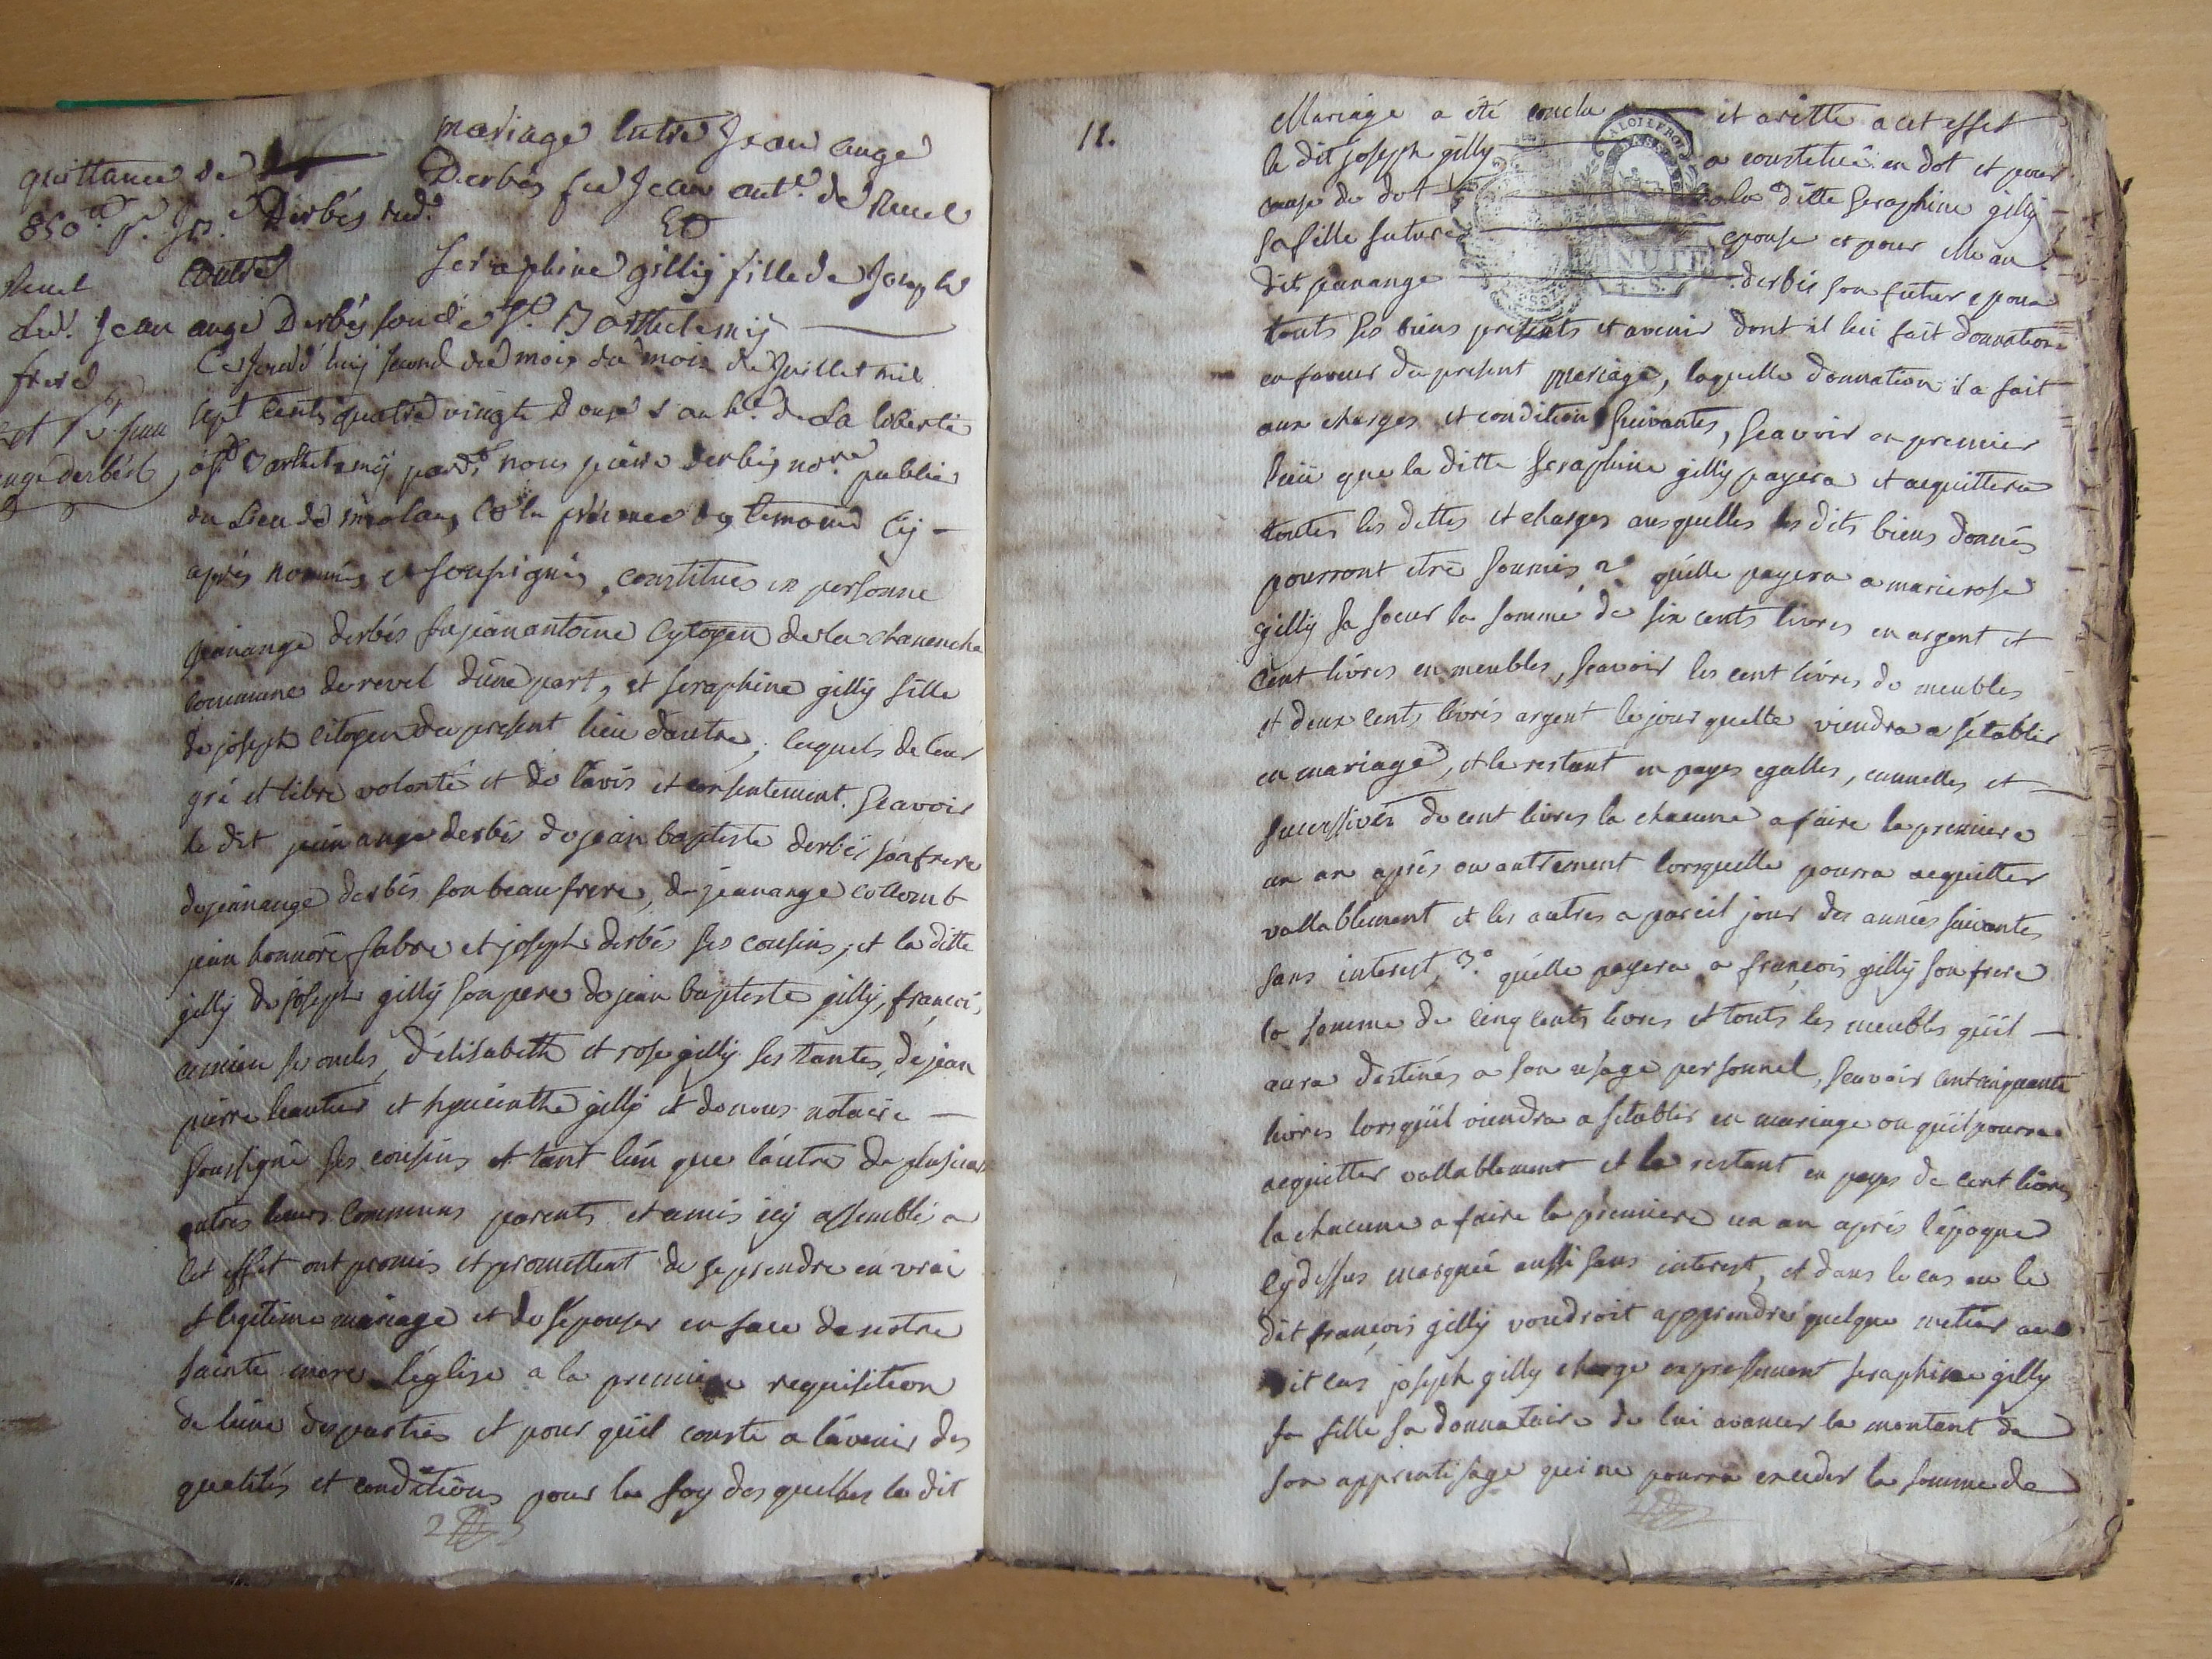 mariage Entre Jean ange
Derbés feu Jean ant.e de Revel
Et
Seraphine gilly fille de Joseph
de St. Barthelemy
quittance de
850# p. Jn. Derbés
Revel contre
Led. Jean ange Derbés son
frere
jean
ange derbés
Cejourd'huy second du mois du mois de Juillet mil
sept cents quatre vingts Douze L'an 4e. de La liberté
a St Barthelemy pard.t nous pierre derbés no.re public
du Lieu de meolans Et la présence des temoins Cy
après nommés et soussignés, constitués en personne
jeanange derbés fu jeanantoine Cytoyen de la chanenche
commune de revel d'une part, et seraphine gilly fille
de joseph Citoyen du present lieu d'autre, lesquels de leur
gré et libre volonté et de l'avis et consentement. Scavoir
le dit jean ange derbés de jean baptiste derbés son frere
de jeanange derbés son beau frere, de jeanange collomb
jean honnoré fabre et joseph derbés ses cousins, et la ditte
gilly de joseph gilly son pere de jean baptiste gilly, françois
ses oncles, d'élisabeth et rose gilly ses tantes, de jean
pierre leautier et hyacinthe gilly et de nous notaire
soussigné ses cousins et tant l'un que l'autre de plusieurs
autres leurs communs parents et amis icy assemblés a
cet effet ont promis et promettent de se prendre en vrai
et legitime mariage et de s'épouser en face de notre
sainte mere l'église a la premiere requisition
de l'une des parties et pour qu'il conste a l'avenir des
qualités et conditions pour la foy desquelles le dit
12.
Mariage a été conclu et aretté a cet effet
le dit joseph gilly a constitué en dot et pour
cause de dot a la ditte seraphine gilly
sa fille future epouse et pour elle au
dit jeanange derbés son futur epoux
touts ses biens présents et avenir dont il lui fait donnation
en faveur du present mariage, laquelle donnation il a fait
aux charges et conditions suivantes, scavoir en premier
lieu que la ditte seraphine gilly payera et acquittera
toutes les dettes et charges ausquelles les dits biens donnés
pourront etre soumis 2° qu'elle payera a marie rose
gilly sa soeur la somme de six cents livres en argent et
Cent livres en meubles, scavoir les cent livres de meubles
et deux cents livres argent le jour quelle viendra a s'établir
en mariage, et le restant en payes egalles, annuelles et
successives de cent livres la chacune a faire la premiere
un an après ou autrement lorsquelle pourra acquitter
vallablement et les autres a pareil jour des années suivantes
sans interest, 3° qu'elle payera a françois gilly son frere
la somme de cinq cents livres et touts les meubles qu'il
aura destinés a son usage personnel, scavoir cent cinquante
livres lorsqu'il viendra a s'etablir en mariage ou qu'il pourra
acquitter vallablement et le restant en payes de cent livres
la chacune a faire la premiere un an après l'époque
cy dessus marquée aussi sans interest, et dans le cas ou le
dit françois gilly voudroit apprendre quelque métier au
dit cas joseph gilly charge expressement seraphine gilly
sa fille sa donnataire de lui avancer le montant de
son apprentisage qui ne pourra exceder la somme de
LA LOI ET LE ROI
MINUTE